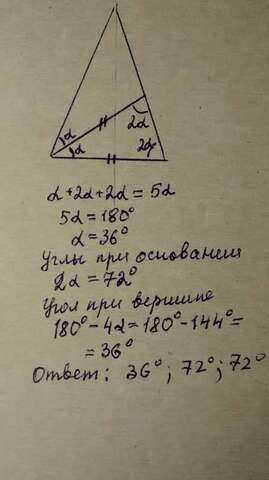 α
α
2α
2α
α+2α+2α=5α
5α=180°
α=36°
Углы при основании
2α=72°
Угол при вершине
180°-4α=180°-144°=
=36°
Ответ: 36°; 72°; 72°